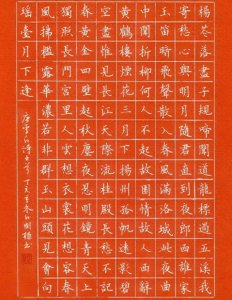 楊花落盡子規啼聞道龍標過五溪我
寄愁心與明月隨君直到夜郎西誰家
玉笛暗飛聲散入春風滿洛城此夜曲
中聞折柳何人不起故園情故人西辭
黃鶴樓煙花三月下揚州孤帆遠影碧
空盡唯見長江天際流桂殿長愁不記
春黃金四屋起秋塵夜懸明鏡青天上
獨照長門宮里人雲想衣裳花想容春
風拂檻露華濃若非群玉山頭見會向
瑤臺月下逢